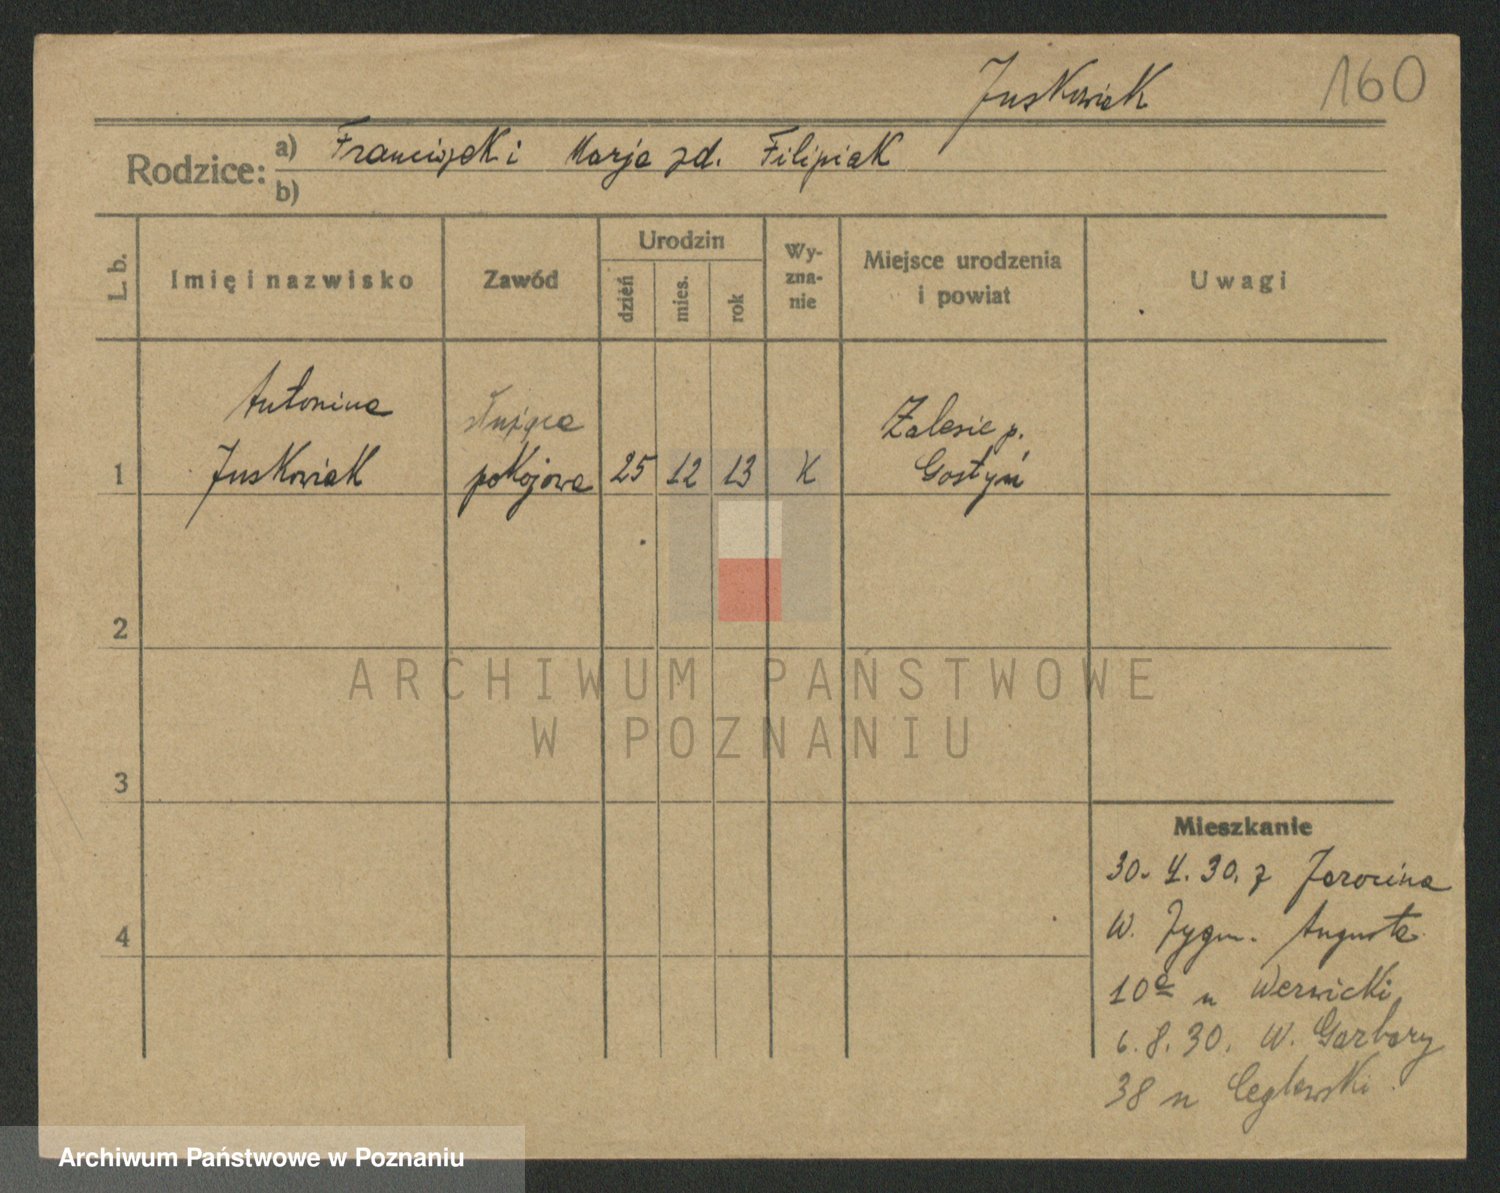 Juskowiak
160
Rodzice:
a) Franciszek i Marja zd. Filipiak
b)
L. b.
Imię i nazwisko
Zawód
Urodzin
dzień
mies.
rok
Wy-
zna-
nie
Miejsce urodzenia
i powiat
Uwagi
Antonina
służąca
Zalesie p.
1 Juskowiak pokojowa 25 12 13 K Gostyń
2
ARCHIWUM PAŃSTWOWE
W POZNANIU
3
Mieszkanie
30. 4. 30. z Jarocina
4
W. Zygm. Augusta
10a u Werwicki
6. 8. 30. W. Garbary
38 u Ceglewski
Archiwum Państwowe w Poznaniu